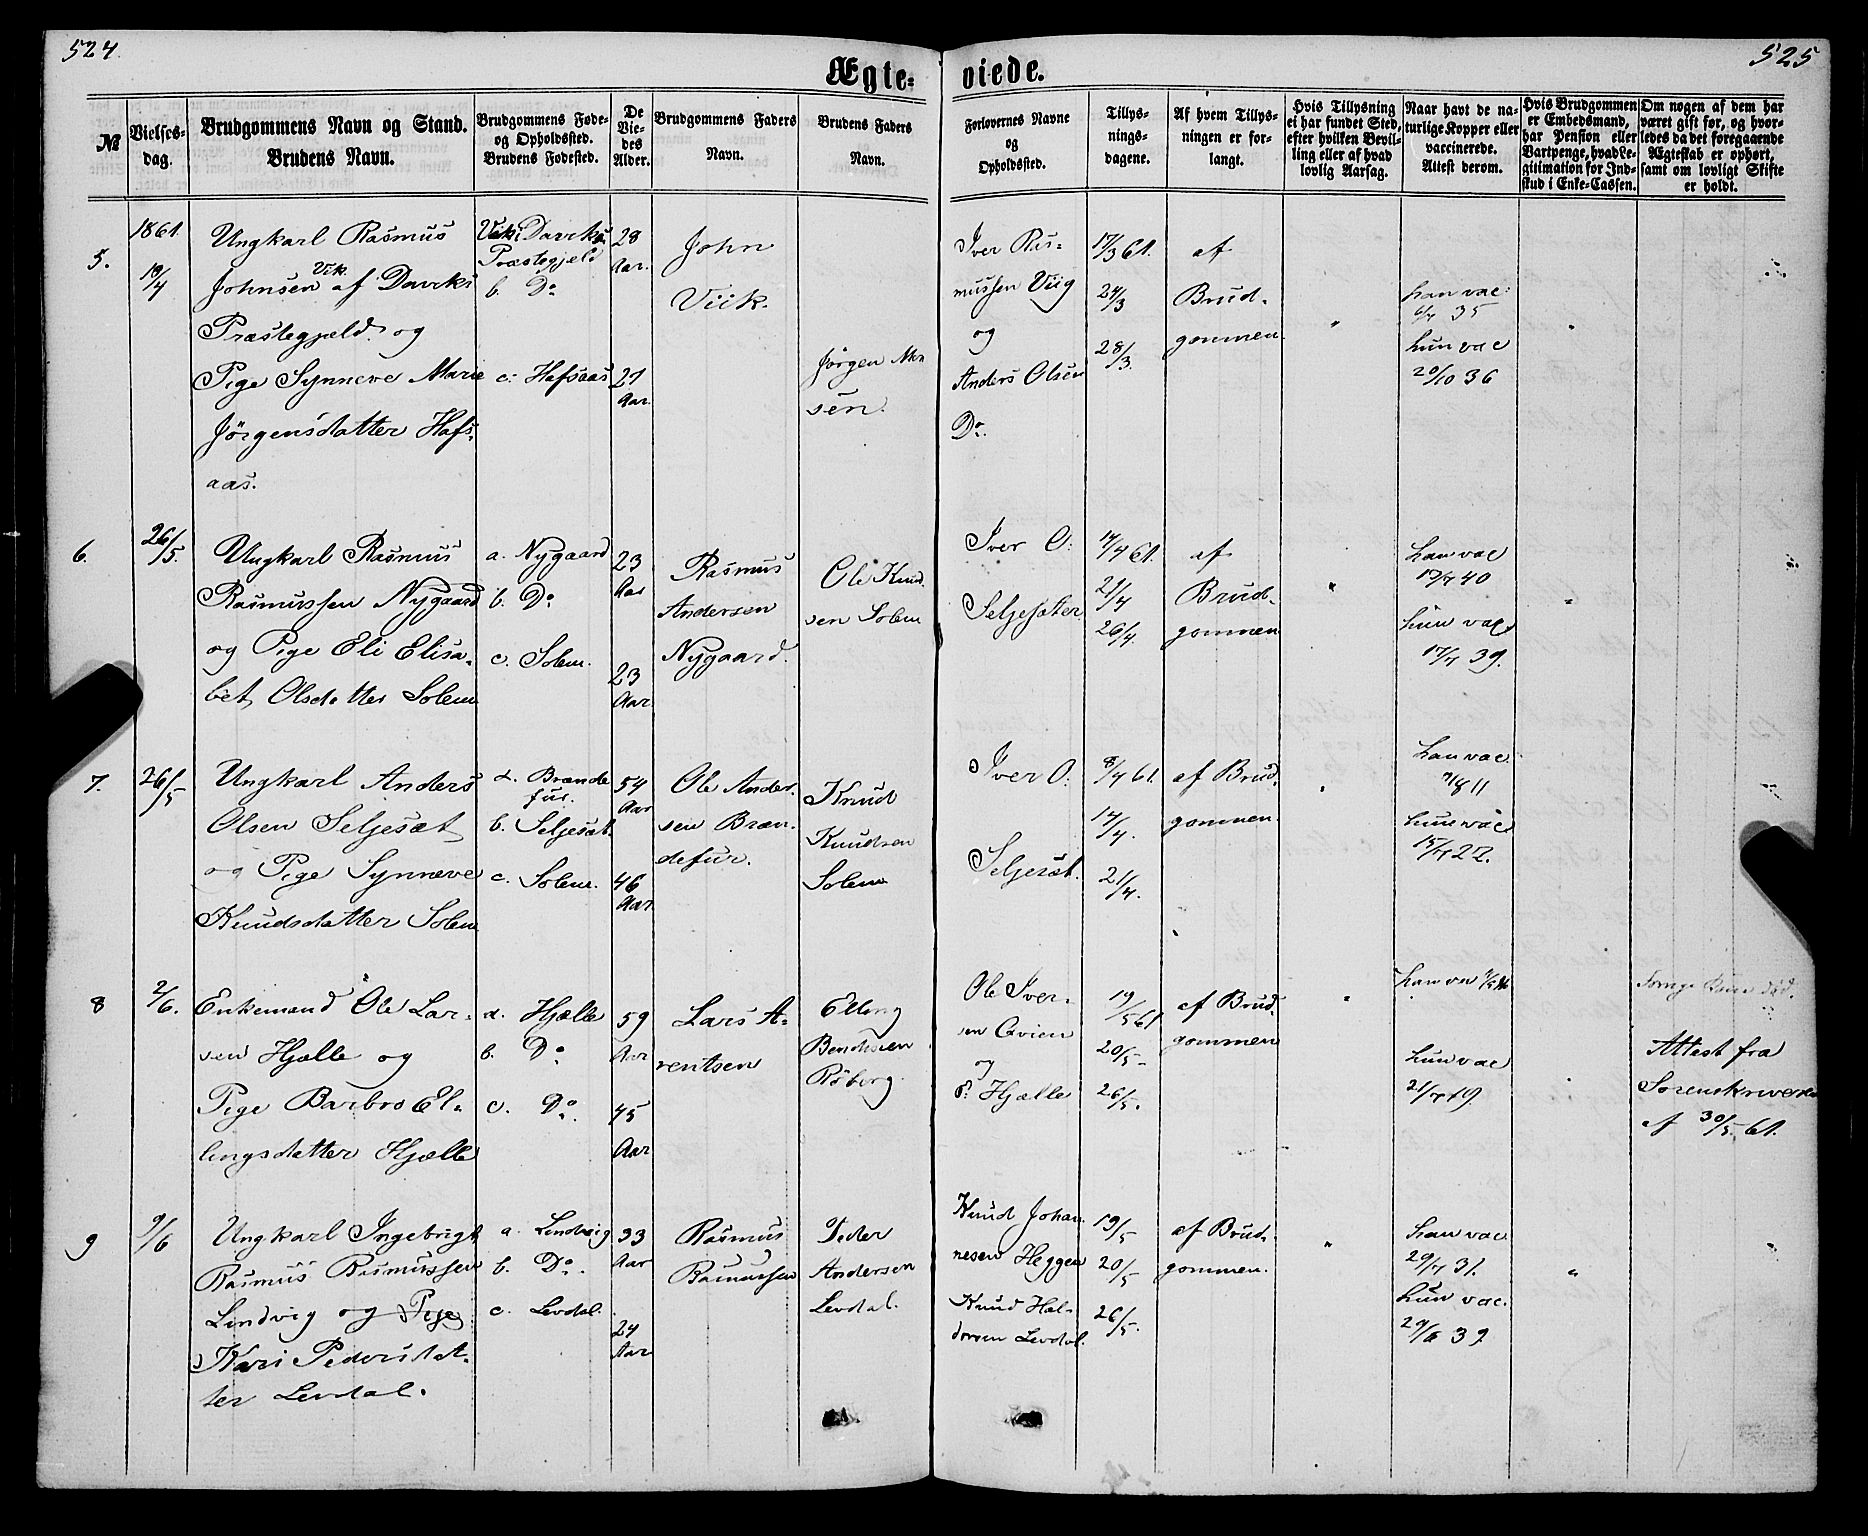 524.
525
Ægte-
viede.
№
Vielses-
dag.
Brudgommens Navn og Stand.
Brudens Navn.
Brudgommens Føde-
og Opholdssted.
Brudens Fødested.
De
Vie-
des
Alder.
Brudgommens Faders
Navn.
Brudens Faders
Navn.
Forlovernes Navne
og
Opholdssted.
Tillys-
nings-
dagene.
Af hvem Tillys-
ningen er for-
langt.
Hvis Tillysning
ei har fundet Sted,
efter hvilken Bevil-
ling eller af hvad
lovlig Aarsag.
Naar havt de na-
turlige Kopper eller
vaccinerede.
Attest derom.
Hvis Brudgommen
er Embedsmand,
har Pension eller
Vartpenge, hvad Le-
gitimation for Ind-
skud i Enke-Cassen.
Om nogen af dem har
været gift før, og hvor-
ledes da det foregaaende
Ægteskab er ophørt,
samt om lovligt Skifte
er holdt.
5.
1861.
18/4
Ungkarl Rasmus
Johnsen Vik af Daviks
Præstegjeld og
Pige Synneve Marie
Jørgensdatter Hafs-
aas.
Vik i Daviks
Præstegjeld
b. Do
c. Hafsaas
28
Aar.
27
Aar.
John
Viik.
Jörgen
sen.
Iver Ras-
mussen Viig
og
Anders Olsen
Do.
17/3 61.
24/3
28/3.
af
Brud-
gommen.
"
han vac
6/7 35
hun vac
20/10 36
"
6.
26/5.
Ungkarl Rasmus
Rasmussen Nygaard
og Pige Eli Elisa-
bet Olsdatter Solem
a. Nygaard
b. Do
c. Solem.
23
Aar
23
Aar.
Rasmus
Andersen
Nygaard.
Ole Knud
sen Solem
Iver O.
Seljesæter.
14/4 61.
21/4
26/4.
af
Brud-
gommen
"
han vac
17/7 40
hun vac
17/7 39.
"
7.
26/5
Ungkarl Anders
Olsen Seljesæt
og Pige Synneve
Knudsdatter Solem
a. Brande
fur.
b. Seljesæt.
c. Solem.
54
Aar
46
Aar.
Ole Ander-
sen Bran-
defur.
Knud
Knudsen
Solem
Iver O.
Seljesæt.
8/4 61.
14/4.
21/4.
af Brud-
gommen.
"
han vac
7/8 11
hun vac
15/7 27.
8
2/6.
Enkemand Ole Lar-
sen Hjælle og
Pige Barbro El-
lingsdatter Hjælle
a. Hjælle
b. Do
c. Do.
59
Aar
45
Aar
Lars A-
rentsen
Elling
Bendixen
Röberg.
Ole Iver-
sen Qvien
og
Hjælle
19/5 61
20/5 -
26/5.
af Brud-
gommen
"
han vac
hun vac
21/7 19.
Attest fra
Sorenskriveren
af 30/5. 61.
9
9/6
Ungkarl Ingebrigt
Rasmus Rasmussen
Lindvig og Pige
Kari Pedersdat-
ter Levdal.
a. Lindvig
b. Do.
c. Levdal.
33
Aar
24
Aar
Rasmus
Rasmussen
Peder
Andersen
Levdal.
Knud Johan
nesen Heggen
Knud Hal-
dorsen Levdal.
19/5
20/5
26/5.
af Brud-
gommen.
"
han vac
29/7 31.
hun vac.
29/6 39
"